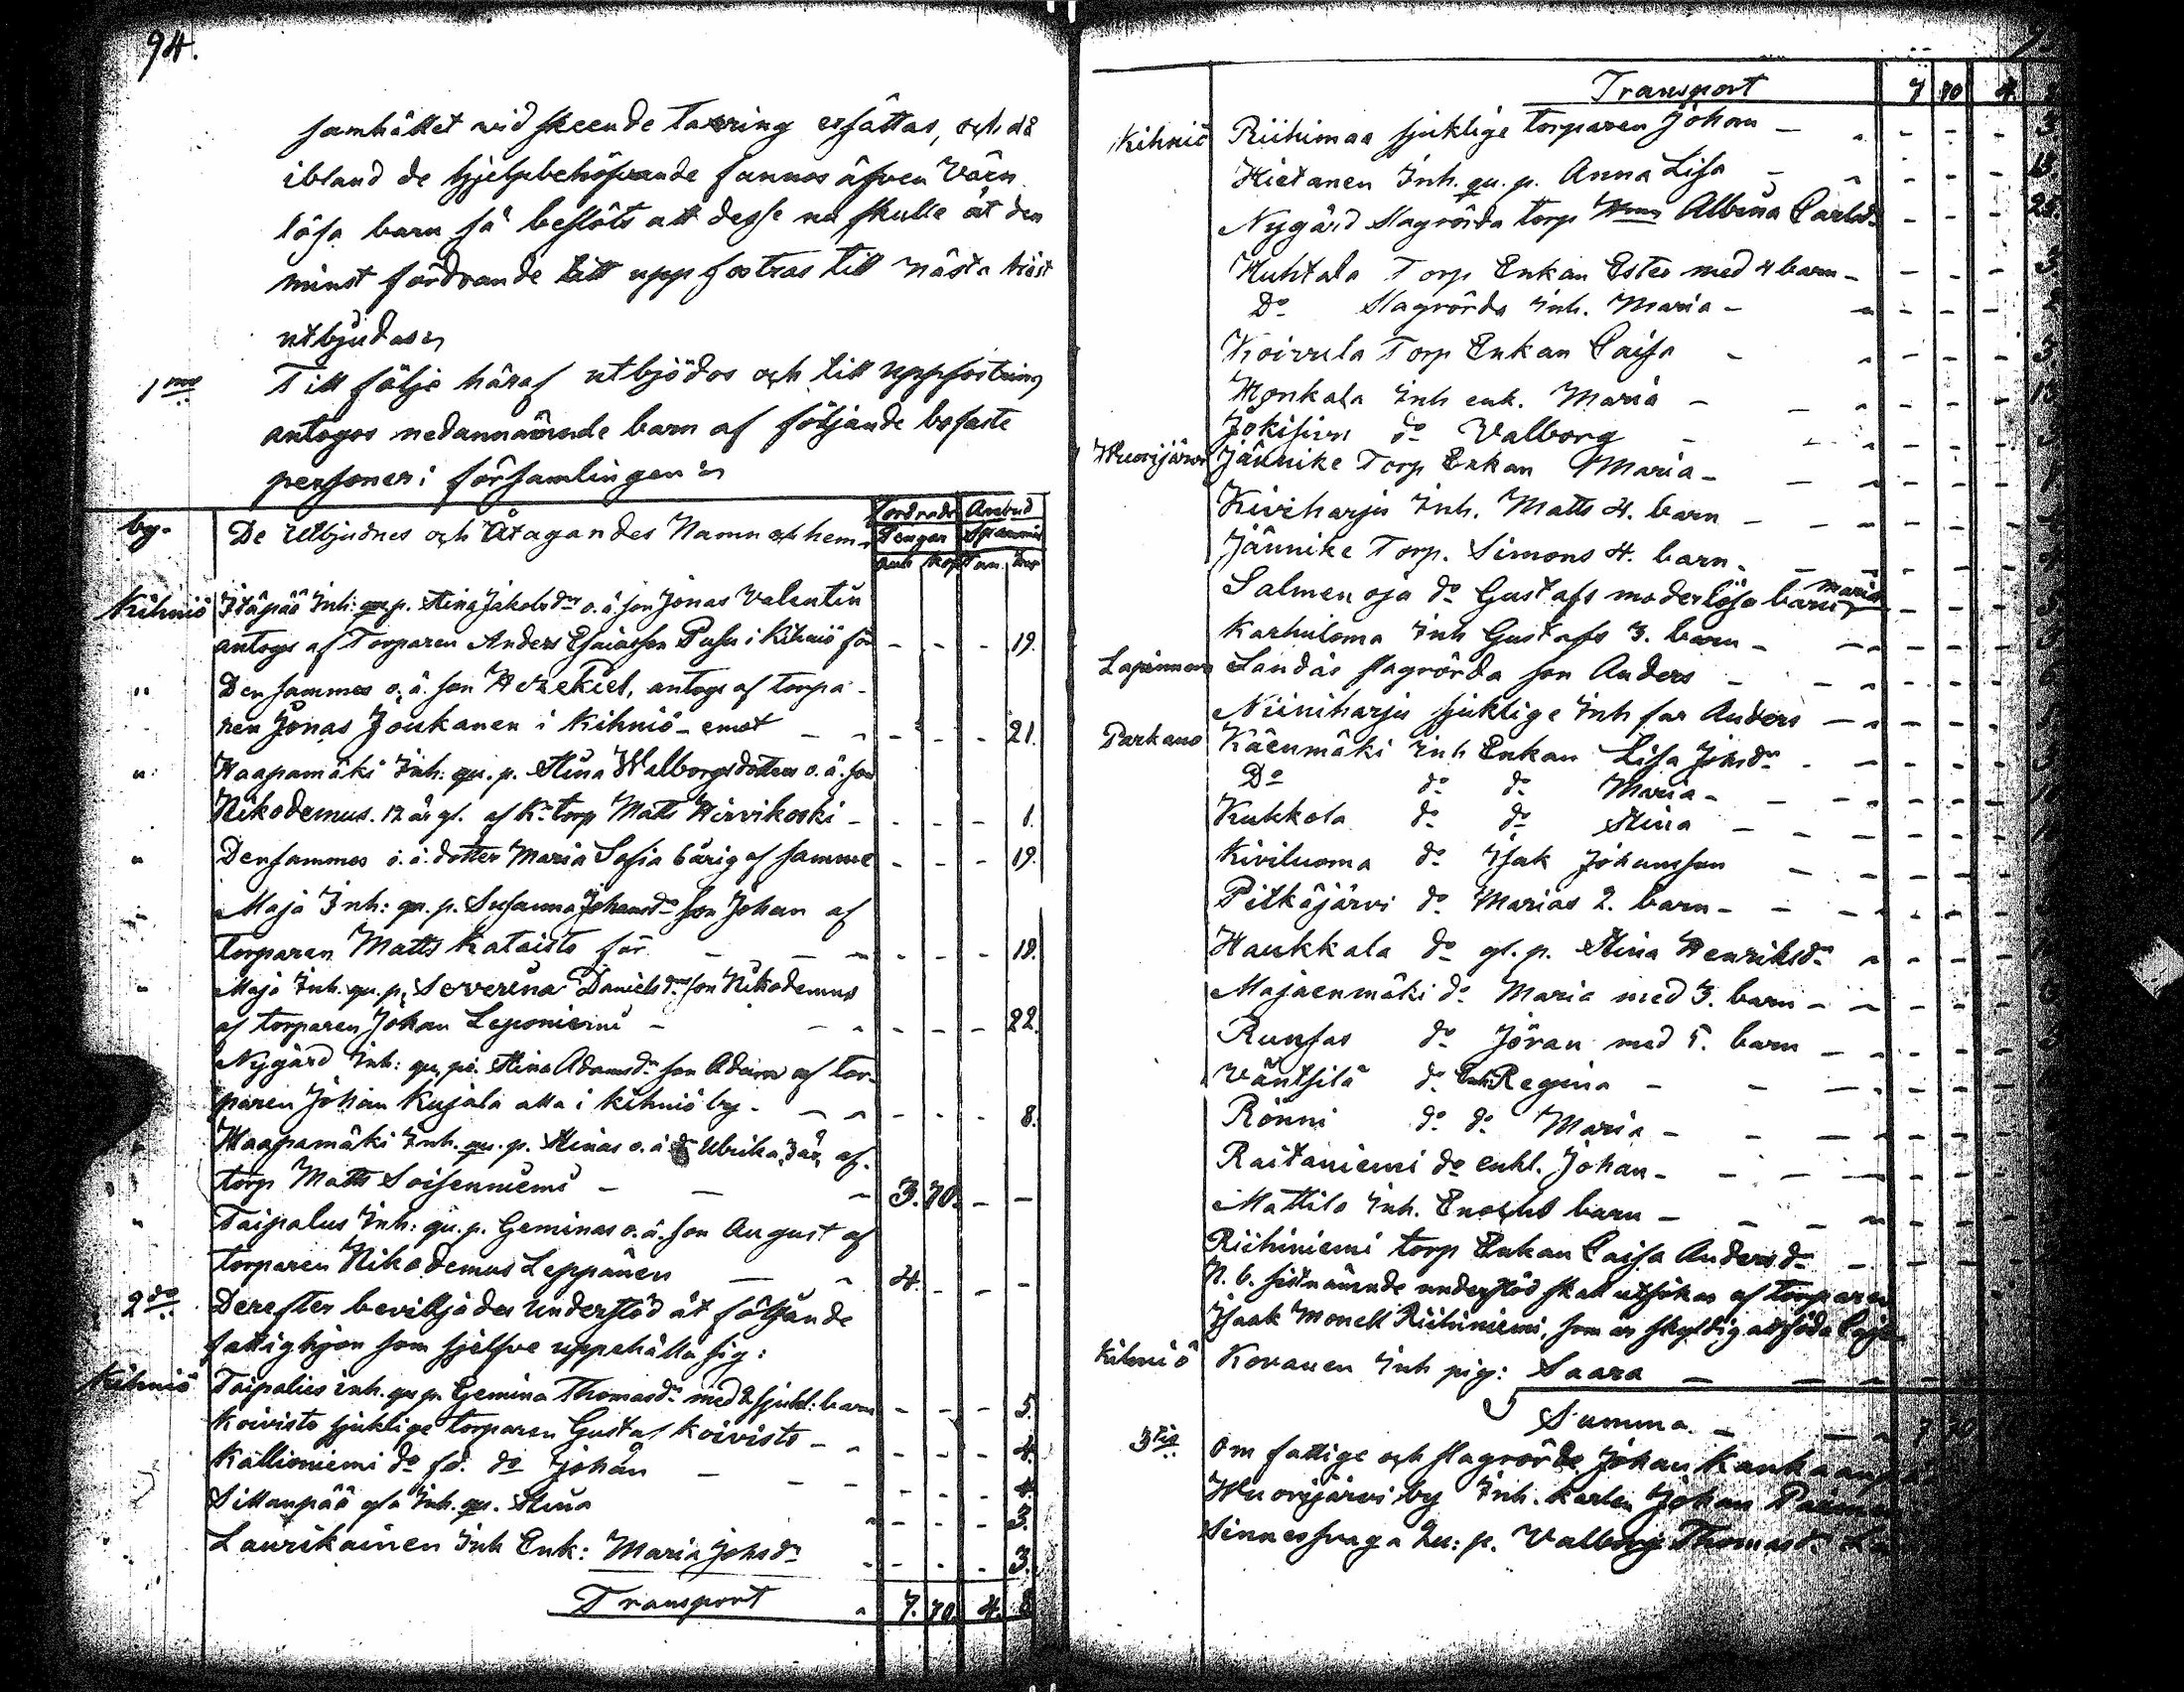 94.
samhället vid skeende taxering ersättas, och då
ibland de hjelpbehöfvande funnos äfven värn
lösa barn så beslöts att desse nu skulle åt den
minst fordrande till uppfostras till nästa höst
utbjudas
1mo Till följe häraf utbjödos och till uppfostring
antogos nedannämnde barn af följande bofaste
personer i församlingen
by. De Utbjudnes och Åtagandes Namn och hem
Fordrade Anbud
Pengar Spannmål
Rub kop Tun
Kihniö Itäpää Inh: qu. p. Stina Jakobsdr o. ä. son Jonas Valentin
antogs af Torparen Anders Esaiasson Pusu i Kihniö för - - - 19.
" Densammes o. ä. son Hezekiel, antogs af torpa-
ren Jonas Joukanen i Kihniö emot - - - 21.
" Haapamäki Inh: qu. p. Stina Walborgsdotters o. ä. son
Nikodemus. 12 år gl. af Kno torp Matts Hirvikoski - - - - 1.
" Densammes o. ä. dotter Maria Sofia 6 årig af samme - - - 19.
" Maja Inh: qu. p. Susanna Johansdr son Johan af
torparen Matts Kataisto för - - - 19.
" Maja Inh. qu. p. Severina Danielsdrs son Nikodemus
af torparen Johan Leponiemi - - - - 22.
Nygård Inh: qu. pi. Stina Adamsdr son Adam af tor-
paren Johan Kujala alla i Kihniö by - - - - 8.
Haapamäki Inh. qu. p. Stinas o. ä. dr Ulrika, 3 år, af
torp Matts Soiseniemi - 3. 70. - -
" Taipalus Inh: qu. p. Geminas o. ä. son August af
torparen Nikodemus Leppänen - 4. - - -
2do Derefter beviljades Understöd åt följande
fattighjon som sjelfve uppehålla sig:
Kihniö Taipalus inh. qu. p. Gemina Thomasdr med 2 sjukl: barn - - - 5.
Koivisto sjuklige torparen Gustaf Koivisto - - - 4.
Kallioniemi do fd. do Johan - - - - 4.
Sillanpää gla Inh. qu. Stina - - - 3.
Laurikainen Inh Enk: Maria Johsdr - - - 3.
Transport 7. 70. 4. 8
Transport 7 70 4.
Kihniö Riihimaa sjuklige torparen Johan - - - - 3
Hietanen Inh. qu. p. Anna Lisa - - - -
Nygård slagrörda torp Albina Carlsdr - - -
Huhtala Torp Enkan Ester med 4 barn - - - - 3
Do slagrörda Inh. Maria - - - -
Koivula Torp Enkan Caisa - - - - 3
Honkala Inh enk. Maria - - - -
Jokisivu do Valborg - - - -
Wuorijärvi Jännike Torp Enkan Maria - - - -
Kiviharju Inh. Matts 4. barn - - - -
Jännike Torp. Simons 4. barn - - - -
Salmenoja do Gustafs moderlösa barn Maria - - -
Karhuloma Inh Gustafs 3. barn - - - -
Lapinneva Sandås slagrörda son Anders - - - -
Niiniharju sjuklige Inh far Anders - - - -
Parkano Käenmäki Inh Enkan Lisa Johsdr - - - -
Do do do Maria - - - -
Kukkola do do Stina - - - -
Kiviluoma do Isak Johansson - - - -
Pitkäjärvi do Marias 2. barn - - - -
Haukkala do gl. p. Stina Henriksdr - - - -
Majaenmäki do Maria med 3. barn - - - -
Runsas do Jöran med 5. barn - - - -
Väntsilä do Enk Regina - - - -
Rönni do do Maria - - - -
Raitaniemi do enkl. Johan - - - -
Mattila Inh. Enochs barn - - - -
Riihiniemi torp Enkan Caisa Andersdr - - - -
N.b. sistnämnde understöd skall utsökas af torparen
Isaak Monell Riihiniemi, som är skyldig att föda
Kihniö Kovanen Inh pig: Saara - - - -
Summa - 7 70
3tio Om fattige och slagrörde Johan
Wuorijärvi by Inh. karlen Johan
Sinnessvaga Inh: p. Valborg Thomasdr